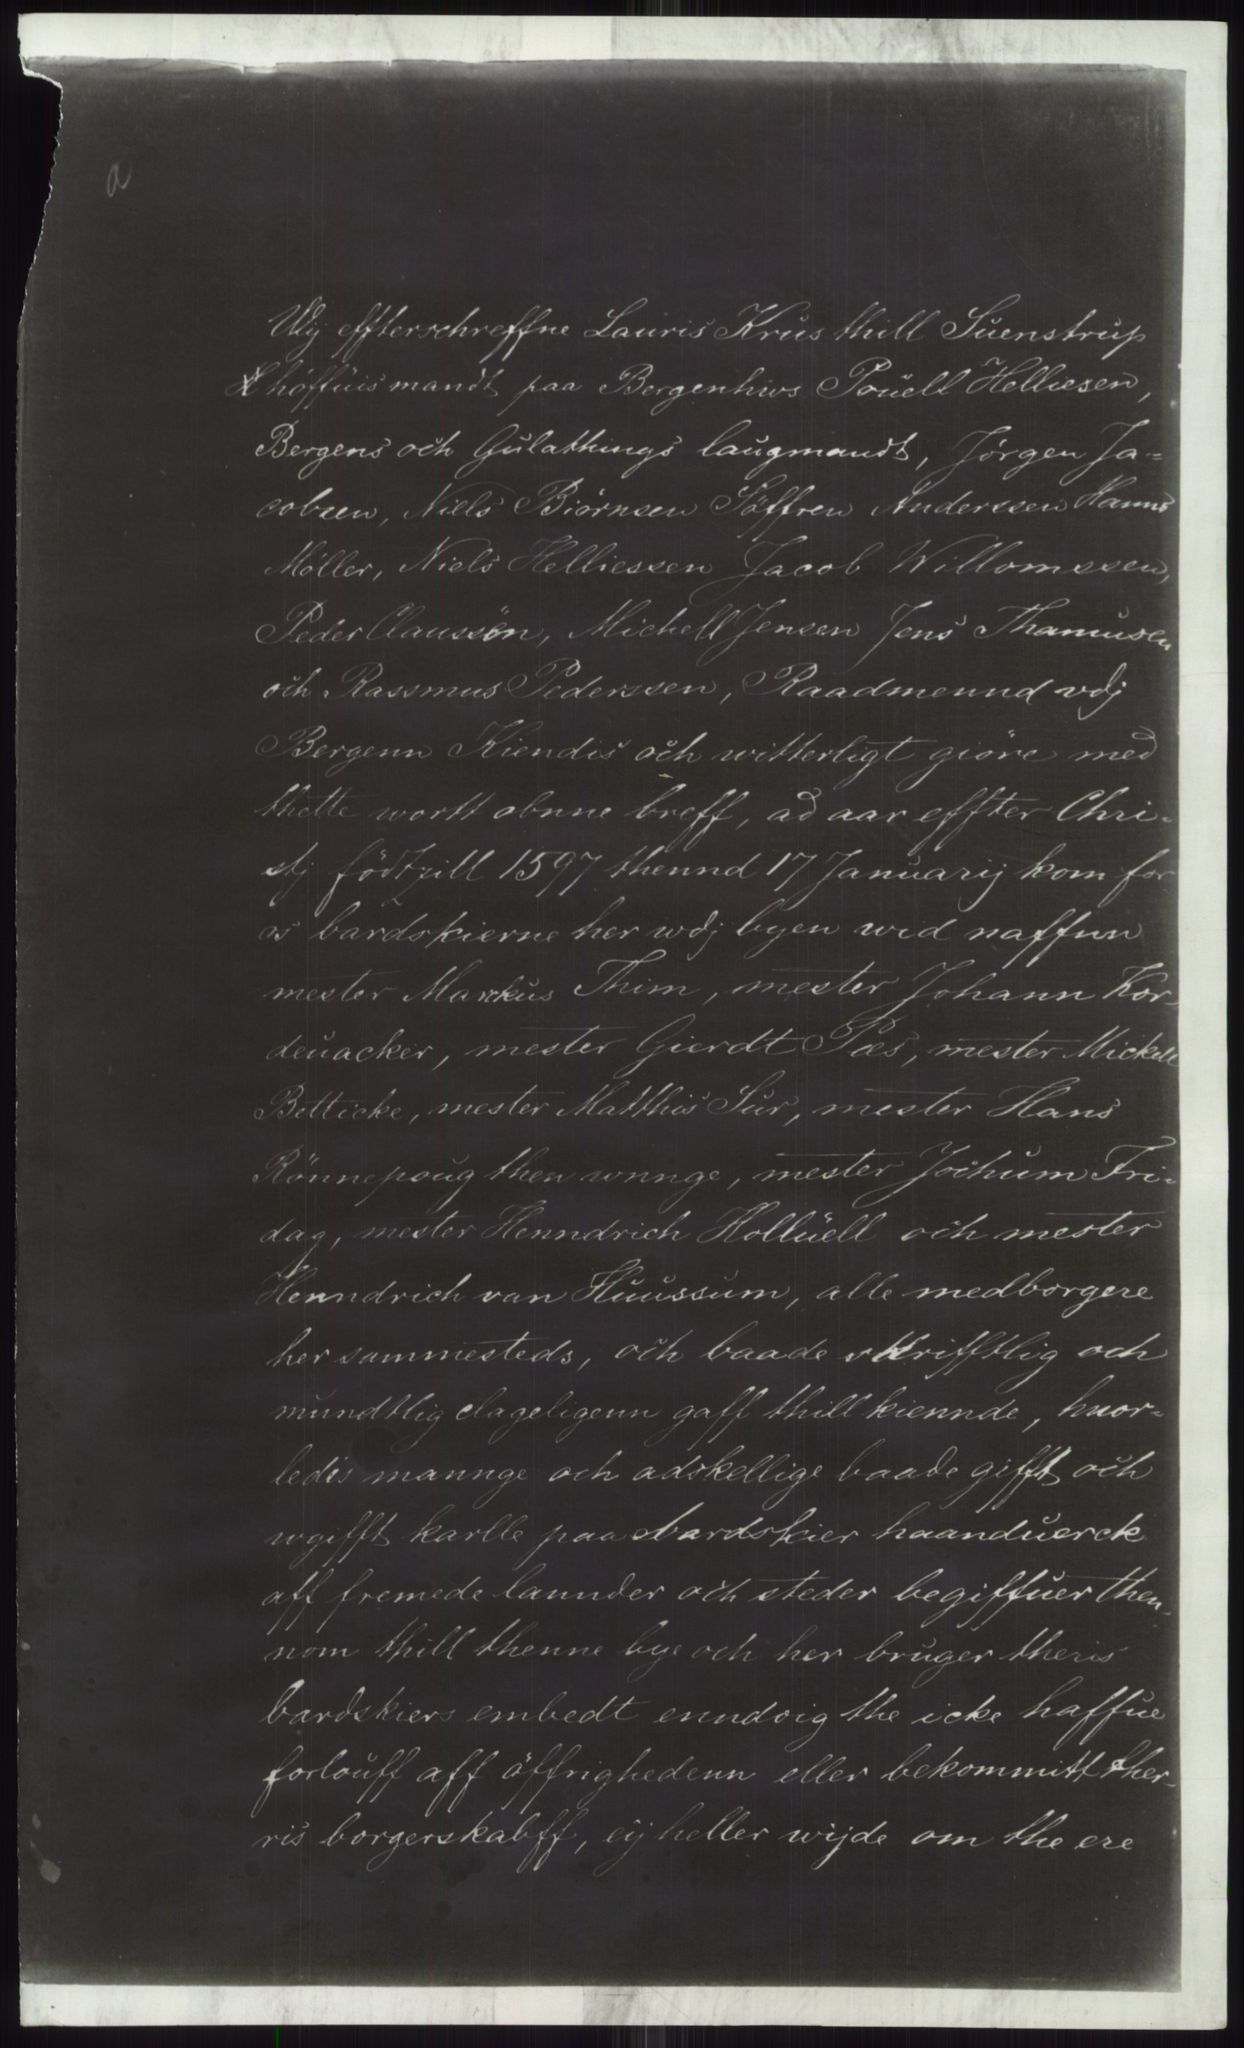 a
Wij effterschreffne Lauris Krus thill Suenstrup
höffuismandt paa Bergenhws Pouell Helliesen,
Bergens och Gulathings laugmandt, Jørgen Ja-
cobsen, Niels Biørnsen Søffren Anderssen Hanns
Møller, Niels Helliessen Jacob Willomssen,
Peder Claussön, Michell Jensen Jens Thamusen
och Rassmus Pederssen, Raadmennd vdj
Bergenn Kiendis och witterligt giöre med
thette wortt obnne breff, ad aar effter Chri-
stj födtzill 1597 thennd 17 Januarij kom for
os bardskierne her wdj byen wid naffnn
mester Markus Thim, mester Johann Kor-
deuacker, mester Gierdt Pæs, mester Mickell
Betticke, mester Matthis Sur, mester Hans
Rönnepoug then wnnge, mester Jochum Fri-
dag, mester Henndrich Holluell och mester
Henndrich van Huussum, alle medborgere
her sammesteds, och baade skrifftlig och
mundtlig clageligenn gaff thill kiennde, huor-
ledis mannge och adskellige baade gifft och
wgifft karlle paa bardskier haanduerck
aff fremede lannder och steder begiffuer then-
nom thill thenne bye och her bruger theris
bardskiers embedt enndoig the icke haffue
forlouff aff öffrighedenn eller bekommitt ther-
ris borgerskabff, eij heller wijde om the ere